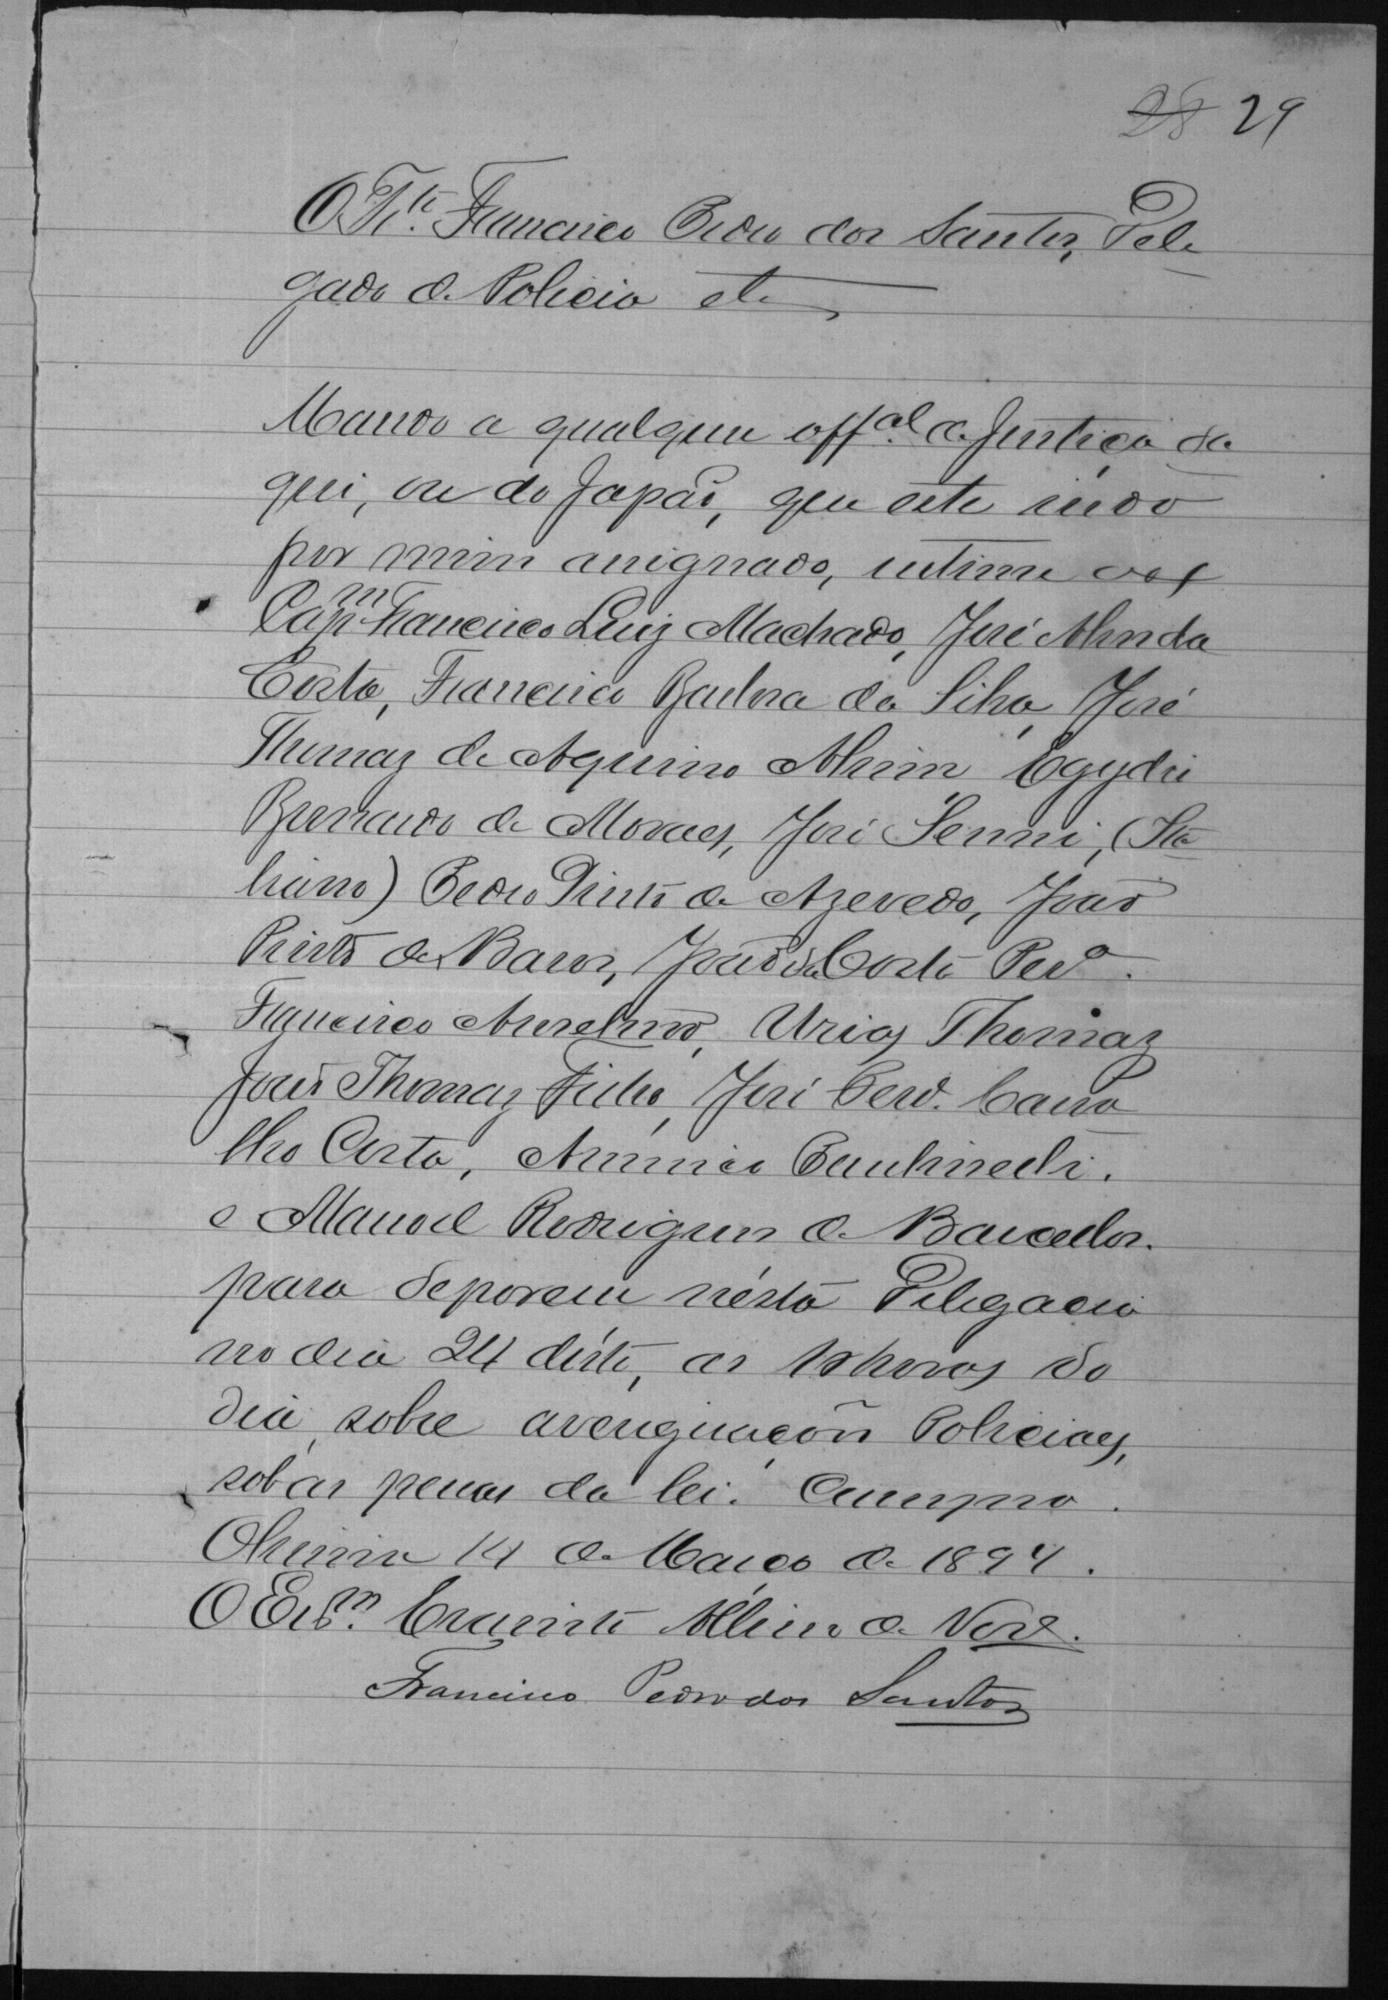 28 29
O Tte. Francisco Pedro dos Santos, Dele
gado de Policia etc
Mando a qualquer offal. de Justiça da
qui, ou do Japão, que este indo
por mim assignado, intime aos
Capm Francisco Luiz Machado, José Alves da
Costa, Francisco Barbosa da Silva, José
Thomaz de Aquino Alvim Egydio
Bernardo de Moraes, José Senni, (Ita
liano) Pedro Pinto de Azevedo, João
Pinto de Barros, João da Costa Pera.
Francisco Anselmo, Urias Thomaz
João Thomaz Filho, José Perª. Carva
lho Costa, Americo
e Manoel Rodrigues de Barcellos.
para deporem nésta Delegacia
no dia 24 déste, as horas do
dia, sobre averiguações Policiaes,
sob as penas da lei. Cumpra.
Oliveira 14 de Março de 1894.
O Escm. de
Francisco Pedro dos Santos